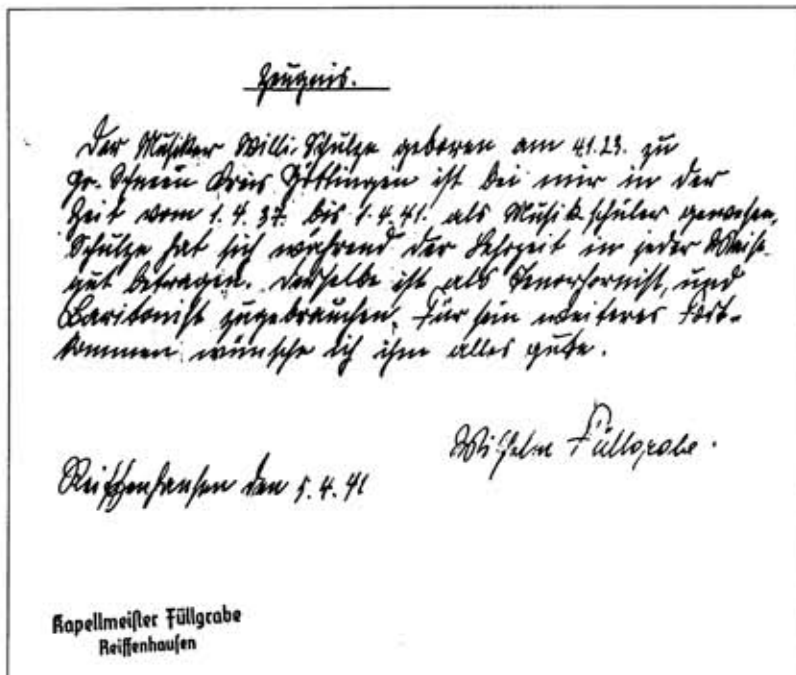 Zeugnis.
Der Musiker Willi Schulze geboren am 4.1.23. zu
Gr. Schneen Kreis Göttingen ist bei mir in der
Zeit vom 1.4.37. bis 1.4.41. als Musikschüler gewesen.
Schulze hat sich während der Lehrzeit in jeder Weise
gut betragen. Derselbe ist als Tenorhornist, und
Baritonist zugebrauchen. Für sein weiteres Fort-
kommen wünsche ich ihm alles gute.
Wilhelm Füllgrabe.
Reiffenhausen den 5.4.41
Kapellmeister Füllgrabe
Reiffenhausen